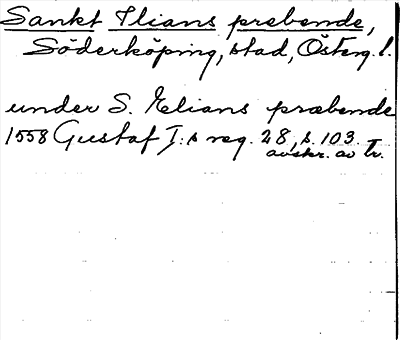 Sankt Ilians prebende,
Söderköping, stad, Österg. l.
under S. Elians præbende
1558 Gustaf I:s reg. 28, s. 103.
avskr. av Tr.